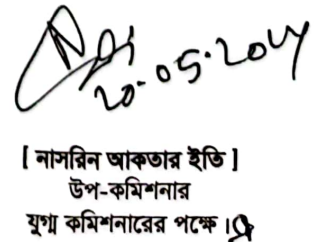 20-05-2014
[ নাসরিন আকতার ইতি ]
উপ-কমিশনার
যুগ্ম কমিশনারের পক্ষে।